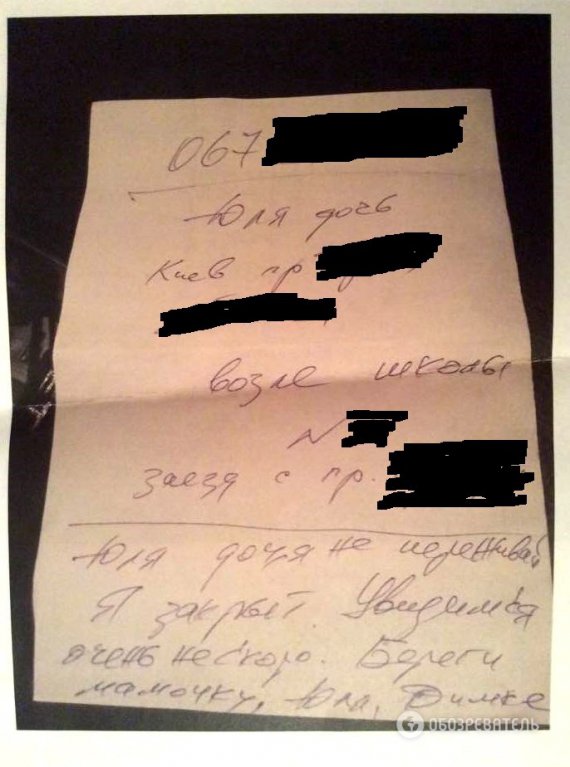 067
Юля дочь
Киев пр
возле школы
№
заезд с пр.
Юля дочя не переживай
Я закрыт. Увидимся
очень не скоро. Береги
мамочку, Юля, Димке
ОБОЗРЕВАТЕЛЬ